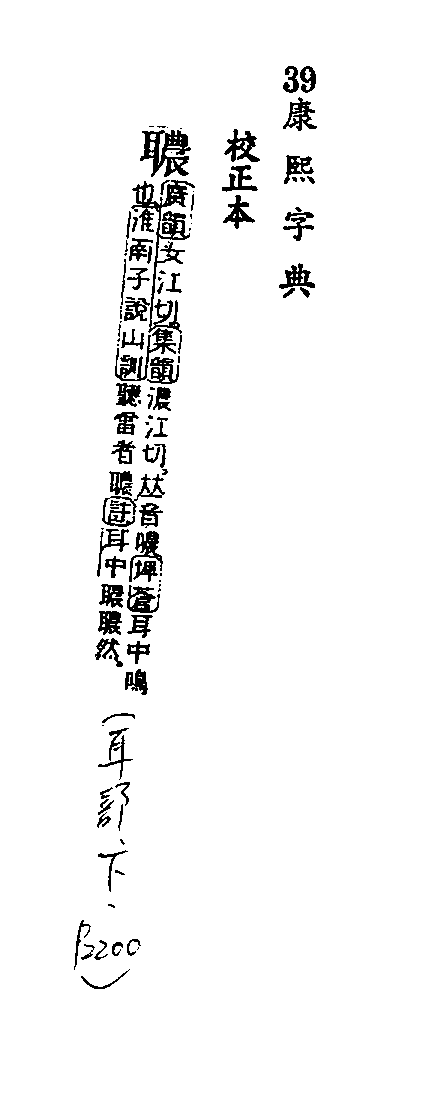 39康熙字典
校正本
𦗳
廣韻女江切。集韻濃江切。𠀤音噥埤蒼耳中鳴
也。淮南子說山訓聽雷者𦗳註耳中𦗳𦗳然。
(耳部、下、P.200)